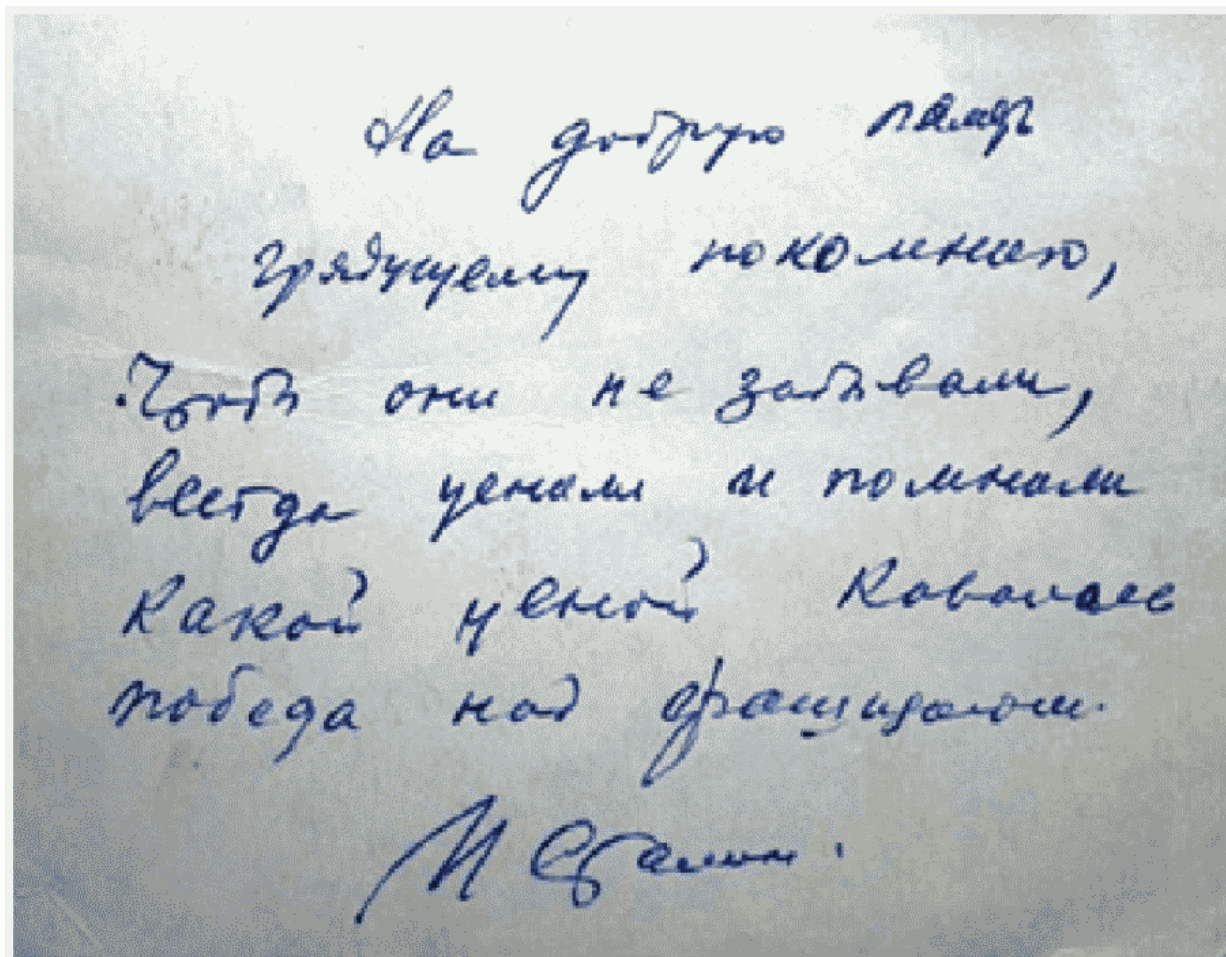 На добрую память
грядущему поколению,
Чтобы они не забывали,
всегда ценили и помнили
Какой ценой Ковалась
победа над фашизмом.
И Сталин.